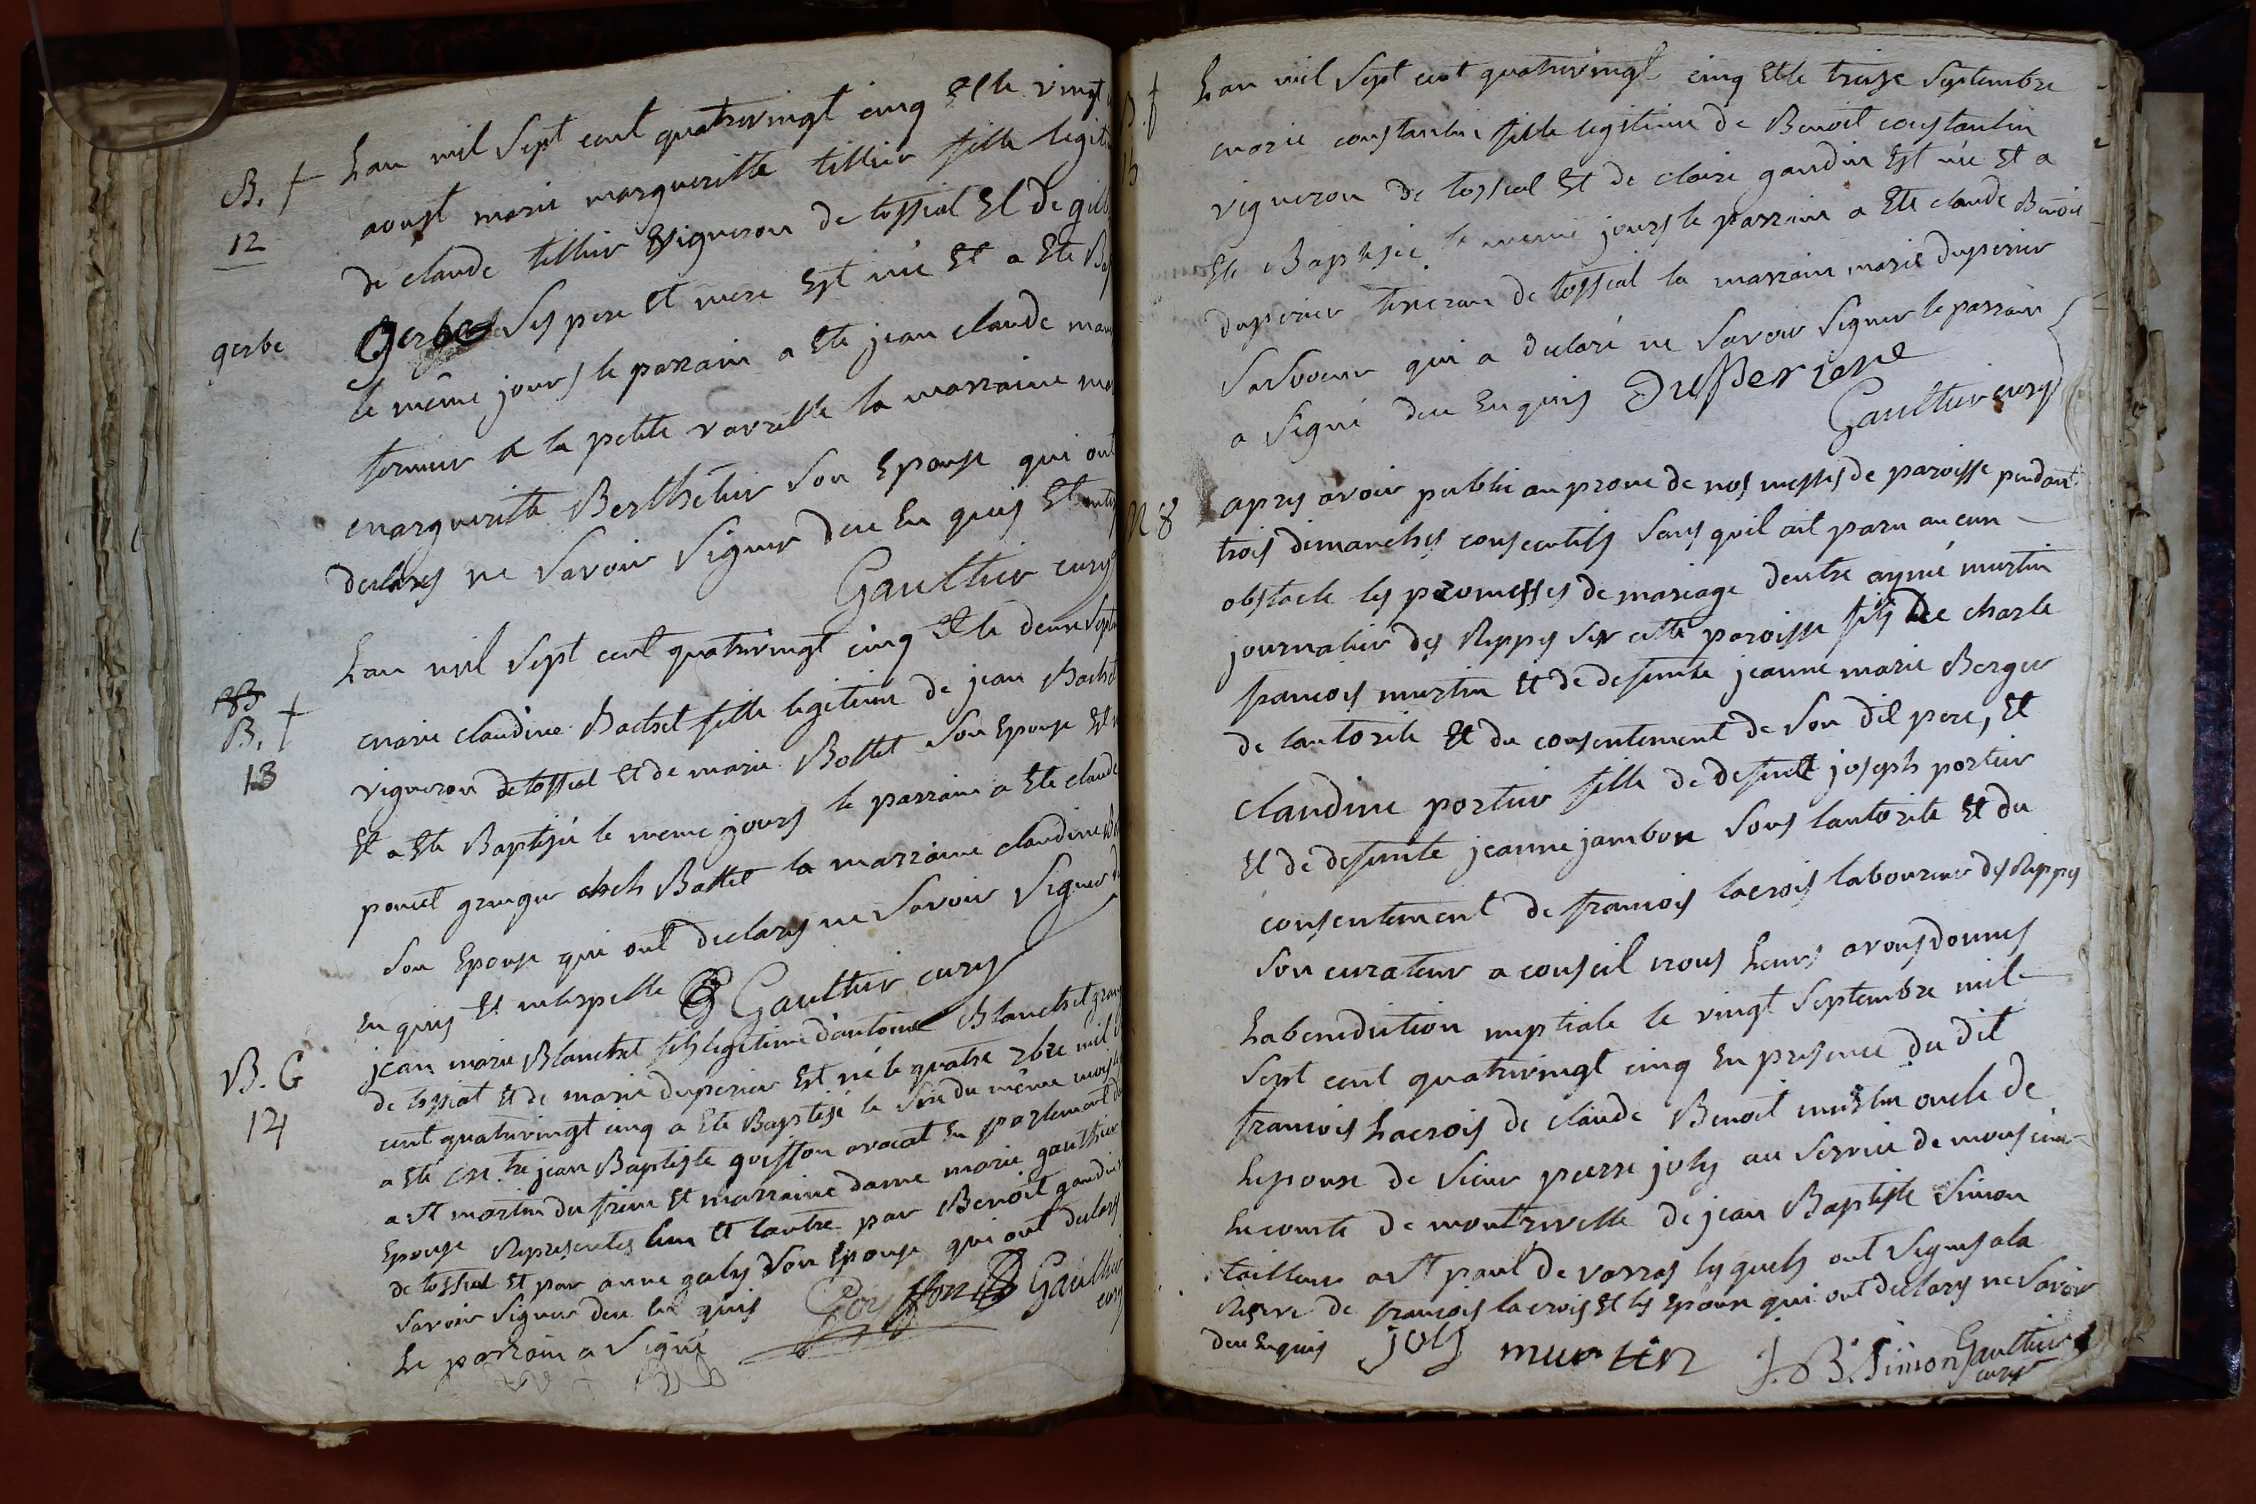 B. f
12
Lan mil sept cent quatrevingt cinq et le vingt
aoust marie margueritte tillier fille legiti
de claude tillier vigneron de tossiat et de gilb
gerbe
Gerbes ses pere et mere est née et a ete Bap
le même jours le parrain a ete jean claude mar
fermier a la petite vavrette la marraine mar
margueritte Berthelier son Epouse qui ont
declares ne savoir signer deu En quis Et inter
Gaulthier curé
Lan mil sept cent quatrevingt cinq et le deux septem
B. f
13
marie claudine Bachet fille legitime de jean Bachet
vigneron de tossiat et de marie Bottet son Epouse Est
Et a ete Baptisée le meme jours le parrain a Ete claude
poncet granger chés Bottet la marraine claudine
son Epouse qui ont declares ne savoir signer
En quis Et interpelle Gaulthier curé
B. G
14
jean marie Blanchet fils legitime d'antoine Blanchet gran
de tossiat et de marie duperier Est né le quatre 7bre mil
cent quatrevingt cinq a Ete Baptisé le six du même mois
a ete jean Baptiste goiffon avocat En parlement
a St martin du frene Et marraine dame marie gaulthier
Epouse Representes lun Et lautre par Benoit gaudin
de tossiat Et par anne galy son Epouse qui ont declares
savoir signer deu En quis Goyffon Gaulthier
Le parrain a signé curé
B. f
15
Lan mil sept cent quatrevingt cinq Et le treize septembre
marie constantin fille legitime de Benoit constantin
vigneron de tossiat Et de claire gaudin Est née Et a
Ete Baptisée le meme jours le parrain a Ete claude Benoit
duperier tisseran de tossiat la marraine marie duperier
sa soeur qui a declaré ne savoir signer le parrain
a signé deu Enquis Duperiere
Gaulthier curé
M 8
apres avoir publié au prone de nos messes de paroisse pendant
trois dimanches consecutifs sans quil ait paru aucun
obstacle les promesses de mariage dentre aymé murtin
journalier des Rippes sur cette paroisse fils de charle
francois murtin Et de defunte jeanne marie Berger
de lautorite Et du consentement de son dit pere, Et
Claudine portier fille de defunt joseph portier
Et de defunte jeanne jambon sous lautorite Et du
consentement de francois lacrois laboureur des Rippes
son curateur a conseil nous leurs avons donnés
La benediction nuptiale le vingt septembre mil
sept cent quatrevingt cinq En presence du dit
francois Lacrois de claude Benoit murtin oncle de
Lepoux de sieur pierre joly au service de monsieur
Le comte de montrevelle de jean Baptiste simon
tailleur a St paul de varras les quels ont signés a la
Reserve de francois lacrois Et les Epoux qui ont declares ne savoir
deu Enquis joly murtin J. B. Simon Gaulthier
curé